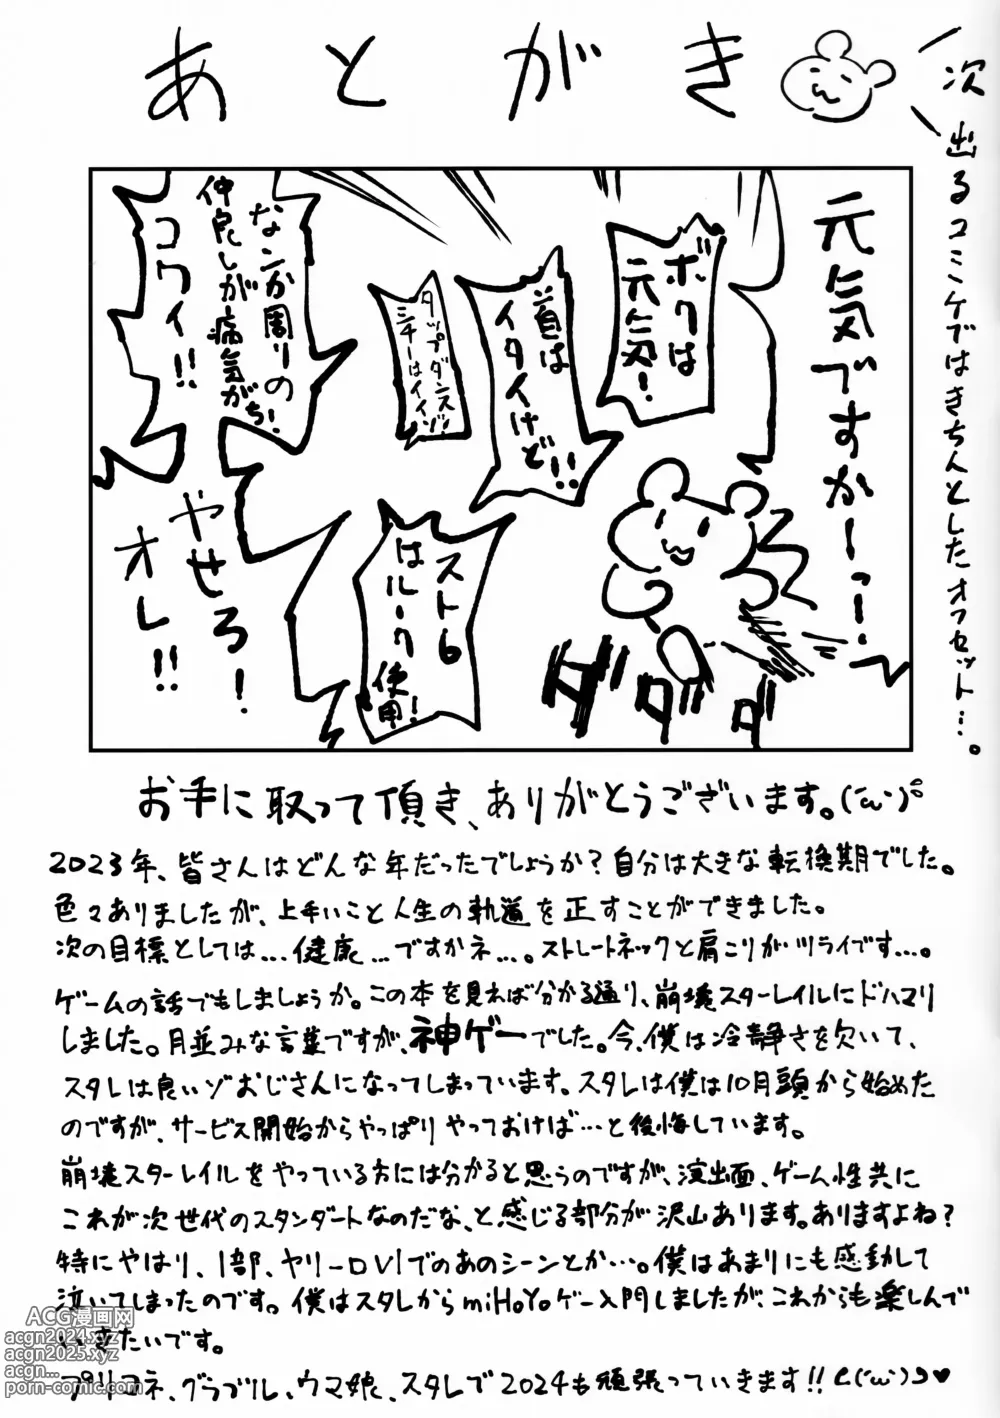 あとがき
次出るコミケではきちんとしたオフセット…。
元気ですかーっ!
ボクは
元気!
首は
イタイけど!!
タップダンス
シチーはイイゾ!
なンか周りの
仲良しが病気がち!
コワイ!!
スト6
はルーク
使用!
やせろ!
オレ!!
ダダダ
お手に取って頂き、ありがとうございます。(´ω`)
2023年、皆さんはどんな年だったでしょうか?自分は大きな転換期でした。
色々ありましたが、上手いこと人生の軌道を正すことができました。
次の目標としては…健康…ですかネ…。ストレートネックと肩こりがツライです…。
ゲームの話でもしましょうか。この本を見れば分かる通り、崩壊スターレイルにドハマり
しました。月並みな言葉ですが、神ゲーでした。今、僕は冷静さを欠いて、
スタレは良いゾおじさんになってしまっています。スタレは僕は10月頭から始めた
のですが、サービス開始からやっぱりやっておけば…と後悔しています。
崩壊スターレイルをやっている方には分かると思うのですが、演出面、ゲーム性共に
これが次世代のスタンダートなのだな、と感じる部分が沢山あります。ありますよね?
特にやはり、1部、ヤリーロVIでのあのシーンとか…。僕はあまりにも感動して
泣いてしまったのです。僕はスタレからmiHoYoゲー入門しましたが、これからも楽しんで
いきたいです。
プリコネ、グラブル、ウマ娘、スタレで2024も頑張っていきます!!C(´ω`)つ♥
ACG漫画网
acgn2024.xyz
acgn2025.xyz
acgn....
porn-comic.com